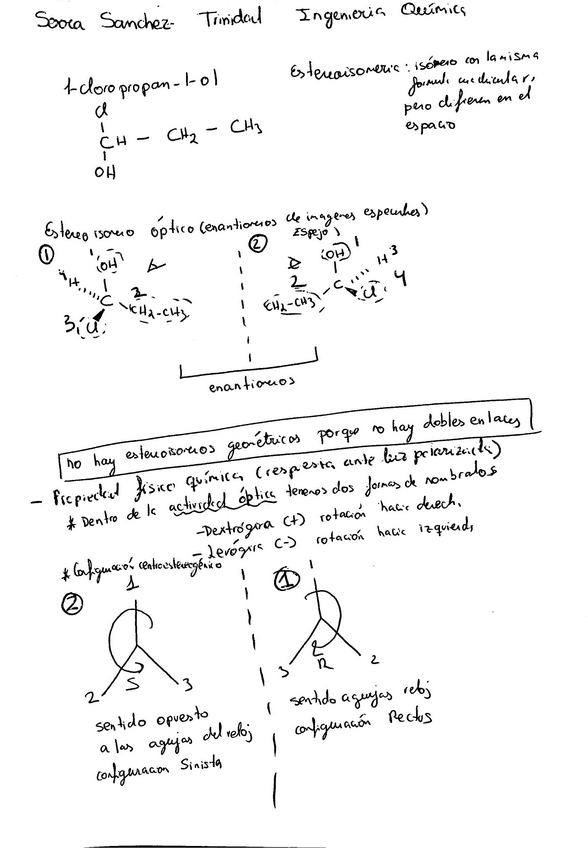 Sosa Sanchez- Trinidad Ingenieria Química
1-cloropropan-1-ol
Estereoisomeria: isómero con la misma
formula molecular,
pero difieren en el
espacio
Cl
CH - CH2 - CH3
OH
Estereo isomero óptico (enantiomeros de imagenes especulares)
Espejo
① ②
OH 1
4 H
C
2
CH2-CH3
3 Cl
OH 1
H 3
2
CH2-CH3
C
Cl 4
enantiomeros
no hay estereoisomeros geométricos porque no hay dobles enlaces
- Propiedad física química (respuesta ante luz polarizada)
* Dentro de la actividad óptica tenemos dos formas de nombrarlos
- Dextrógira (+) rotación hacia derech.
- Levógira (-) rotación hacia izquierda
* Configuración centro estereogénico
② 1
2 S 3
① 1
3 R 2
sentido opuesto
a las agujas del reloj
configuracion Sinista
sentido agujas reloj
configuración Rectus